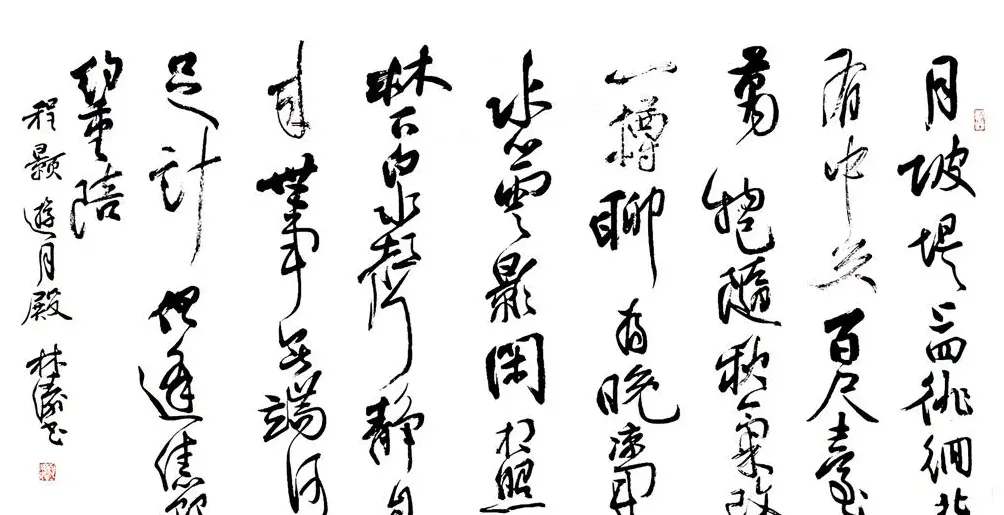 月陂堤上四徘徊北
有中天百尺臺
萬物已隨秋氣改
一樽聊為晚涼開
水心雲影閑相照
林下泉聲靜自
来世事無端何
足計但逢佳節
約重陪
程顥遊月殿 林書